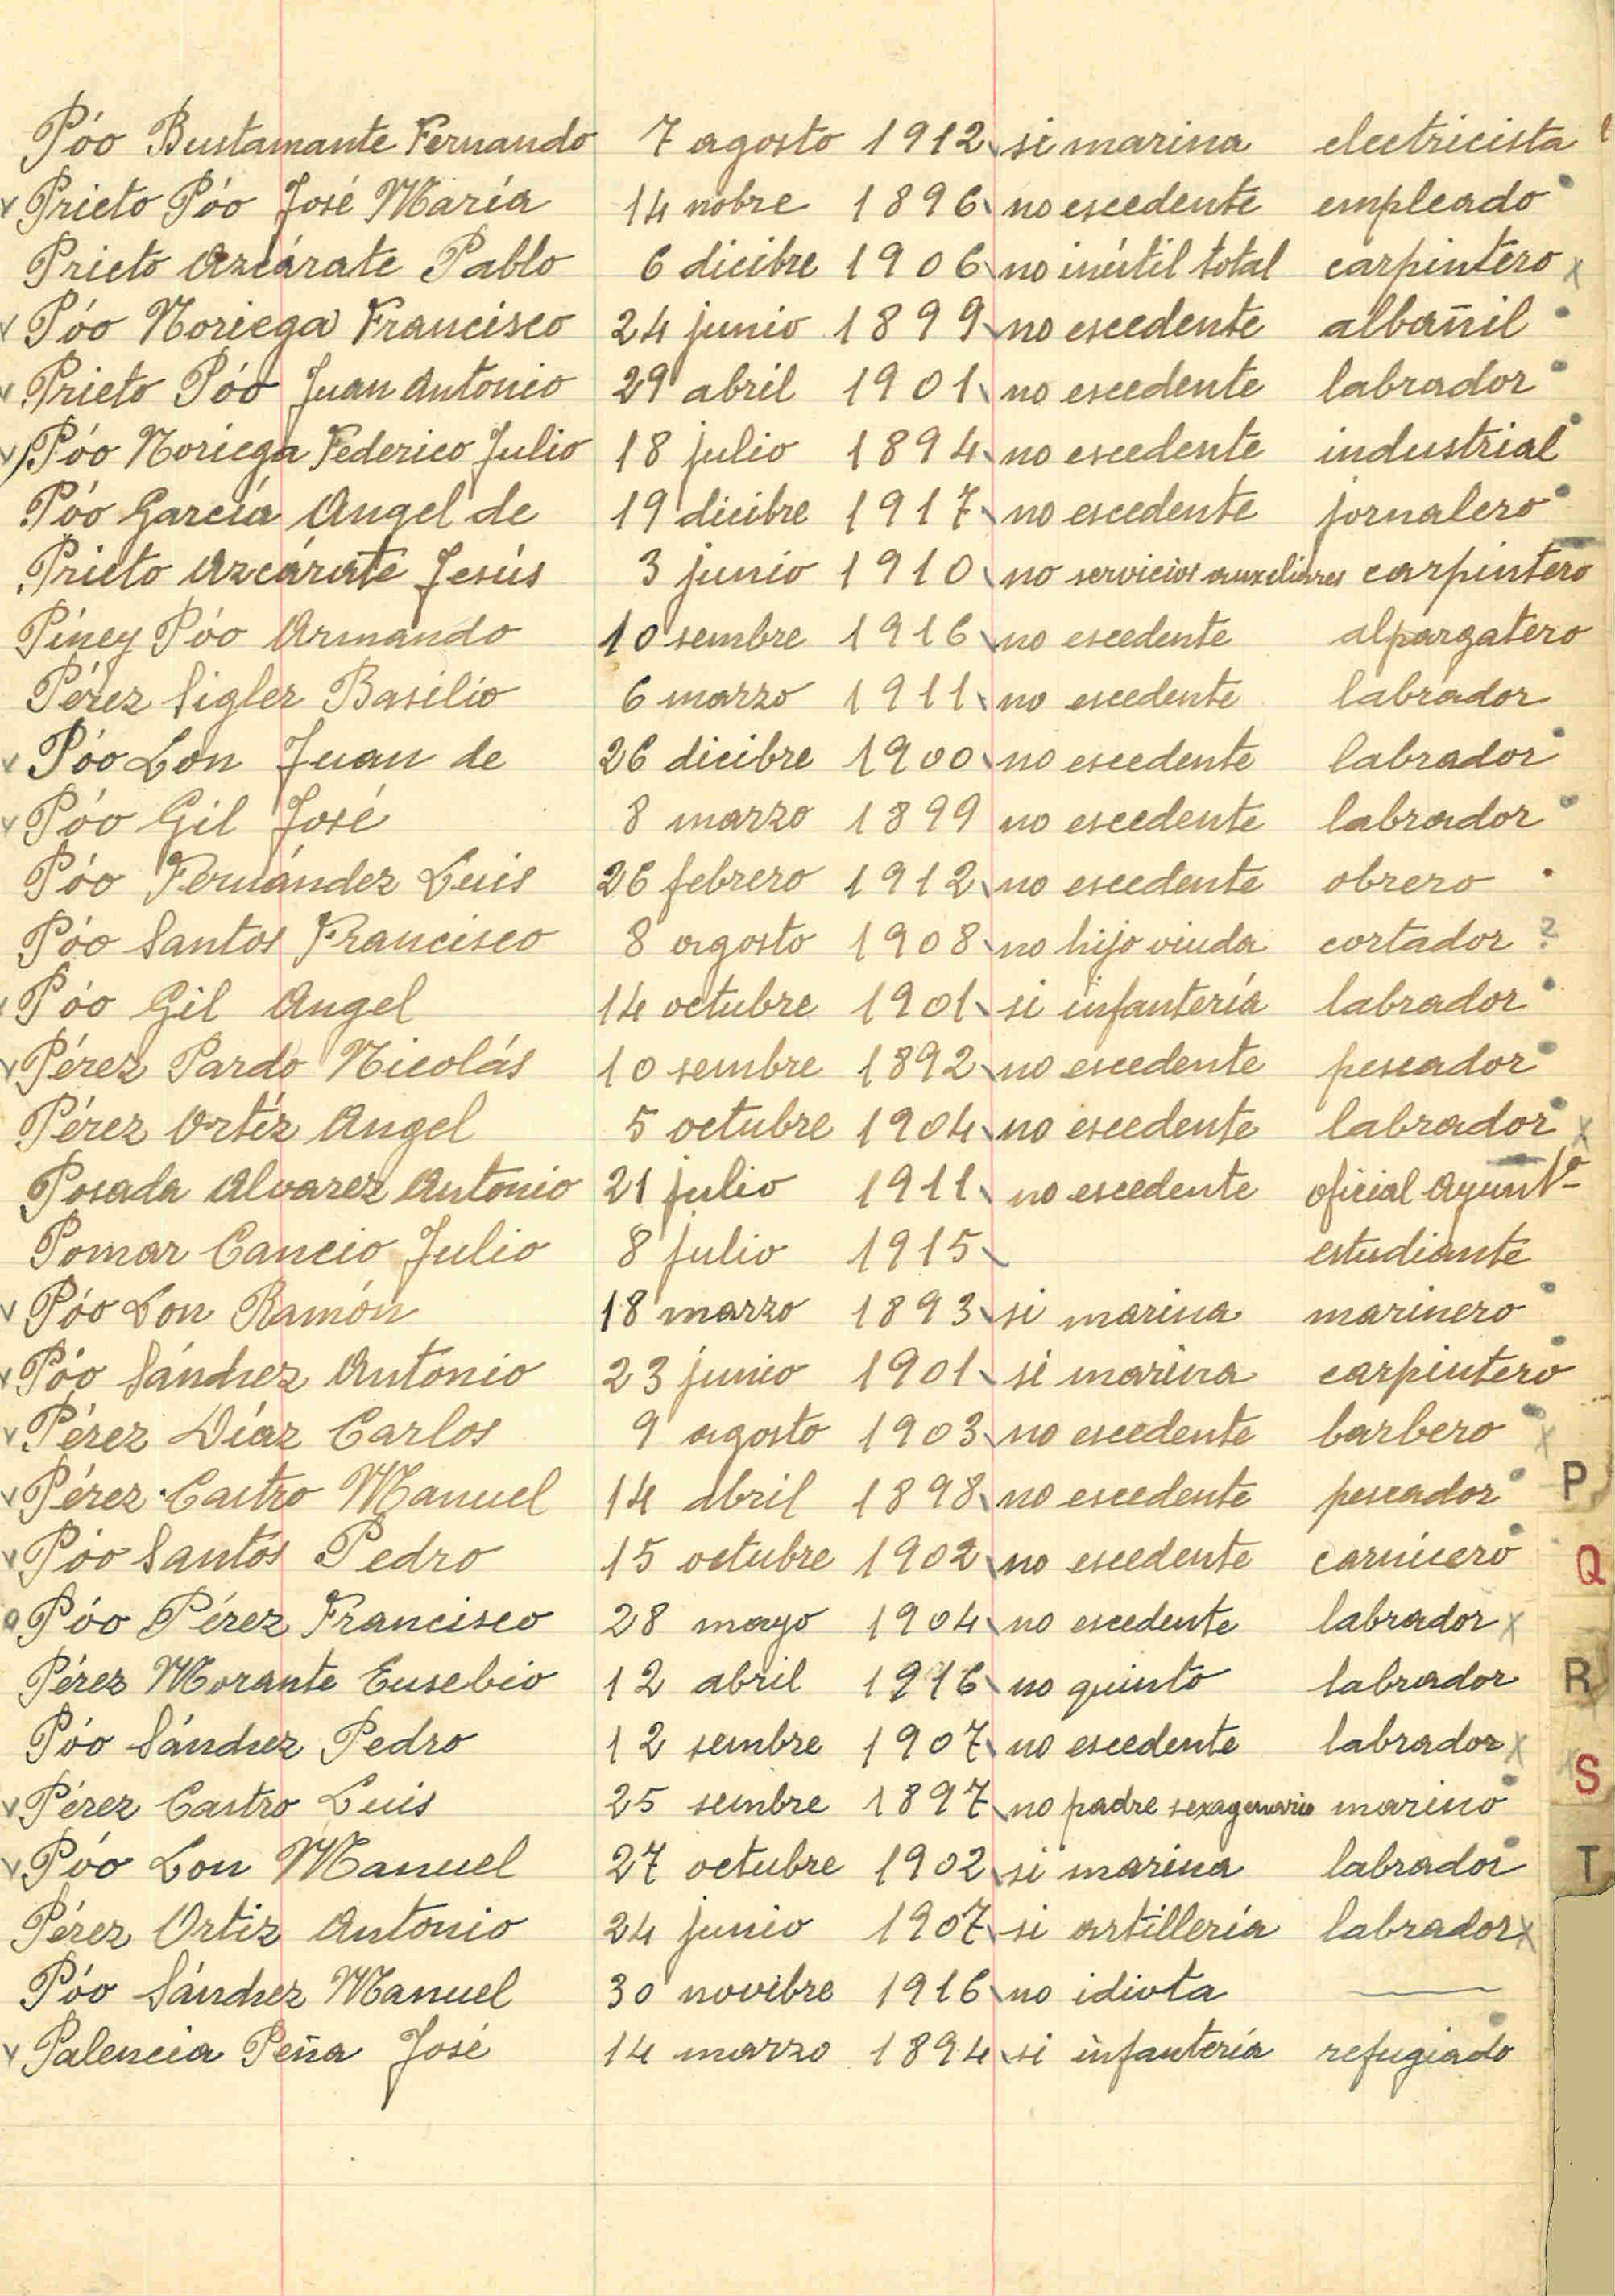 Póo Bustamante Fernando 7 agosto 1912 si marina electricista
Prieto Póo José María 14 nobre 1896 no escedente empleado
Prieto Azcárate Pablo 6 dicibre 1906 no inútil total carpintero x
Póo Noriega Francisco 24 junio 1899 no escedente albañil
Prieto Póo Juan Antonio 29 abril 1901 no escedente labrador
Póo Noriega Federico Julio 18 julio 1894 no escedente industrial
Póo García Angel de 19 dicibre 1917 no escedente jornalero
Prieto Azcárate Jesús 3 junio 1910 no servicios auxeliares carpintero
Píney Póo Armando 10 sembre 1916 no escedente alpargatero
Pérez Sigler Basilio 6 marzo 1911 no escedente labrador
Póo Lon Juan de 26 dicibre 1900 no escedente labrador
Póo Gil José 8 marzo 1899 no escedente labrador
Póo Fernández Luis 26 febrero 1912 no escedente obrero
Póo Santos Francisco 8 agosto 1908 no hijo viuda cortador ?
Póo Gil Angel 14 octubre 1901 si infantería labrador
Pérez Pardo Nicolás 10 sembre 1892 no escedente pescador
Pérez Ortíz Angel 5 octubre 1904 no escedente labrador x
Posada Alvarez Antonio 21 julio 1911 no escedente oficial Ayuntº
Pomar Cancio Julio 8 julio 1915 estudiante
Póo Lon Ramón 18 marzo 1893 si marina marinero
Póo Sánchez Antonio 23 junio 1901 si marina carpintero
Pérez Díaz Carlos 9 agosto 1903 no escedente barbero x
Pérez Castro Manuel 14 abril 1898 no escedente pescador
P
Póo Santos Pedro 15 octubre 1902 no escedente carnicero
Q
Póo Pérez Francisco 28 mayo 1904 no escedente labrador x
Pérez Morante Eusebio 12 abril 1916 no quinto labrador
R
Póo Sánchez Pedro 12 sembre 1907 no escedente labrador x
S
Pérez Castro Luis 25 sembre 1897 no padre sexagenario marino
Póo Lon Manuel 27 octubre 1902 si marina labrador
T
Pérez Ortiz Antonio 24 junio 1907 si artillería labrador x
Póo Sánchez Manuel 30 novibre 1916 no idiota —
Palencia Peña José 14 marzo 1894 si infantería refugiado